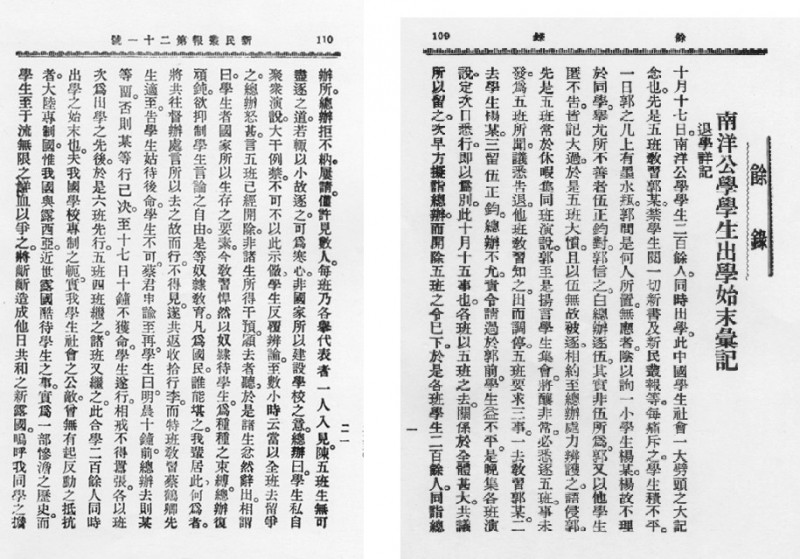 餘錄
109
餘錄
南洋公學學生出學始末彙記
退學詳記
十月十七日南洋公學學生二百餘人同時出學此中國學生社會一大劈頭之大記
念也先是五班敎習郭某禁學生閱一切新書及新民叢報等每痛斥之學生積不平。
一日郭之几上有墨水瓶郭問是何人所置無應者陰以詢一小學生楊某楊故不理
於同學舉尤所不善者伍正鈞對郭信之白總辦逐伍其實非伍所爲郭又以他學生
匿不告皆記大過於是五班大憤且以伍無故被逐相約至總辦處力辨護之語侵郭。
先是五班常於休暇集同班演說郭至是揚言學生集會將釀非常必悉逐五班事未
發爲五班所聞議悉告退他班敎習知之出而調停五班要求三事一去敎習郭某二
去學生楊某三留伍正鈞總辦不允責令請過於郭前學生益不平是晚集各班演
說定次日悉行卽以爲別此十月十五事也各班以五班之去關係於全體甚大共議
所以留之次早方擬詣總辦而開除五班之令已下於是各班學生二百餘人同詣總
一
新民叢報第二十一號
110
辦所總辦拒不納屢請僅許見數人每班乃各舉代表者一人入見陳五班生無可
盡逐之道若輒以小故逐之可爲寒心非國家所以建設學校之意總辦曰學生私自
聚衆演說大干例禁不可不以此示儆學生反覆辨論至數小時云當以全班去留爭
之總辦怒甚言五班已經開除非諸生所得干預願去者聽於是諸生忿然辭出相謂
曰學生者國家所以生存之要素今敎習悍然以奴隸待學生爲種種之束縛總辦復
頑鈍欲抑制學生言論之自由是等奴隸敎育凡爲國民誰能堪之我輩居此何爲者。
將共往督辦處言所以去之故而行不得見遂共返收拾行李而特班敎習蔡鶴卿先
生適至告學生姑待後命學生不可蔡君申論至再學生曰明晨十鐘前總辦去則某
等留否則某等行已决至十七日十鐘不獲命學生遂行相戒不得囂張各以班
次爲出學之先後於是六班先行五班四班繼之諸班又繼之此合學二百餘人同時
出學之始末也夫我國學校專制之軛實我學生社會之公敵曾無有起反動之抵抗
者大陸專制國惟我國與露西亞近世露國酷待學生之事實爲一部慘澹之歷史而
學生至于流無限之鮮血以爭之將斷斷造成他日共和之新露國嗚呼我同學之擯
二